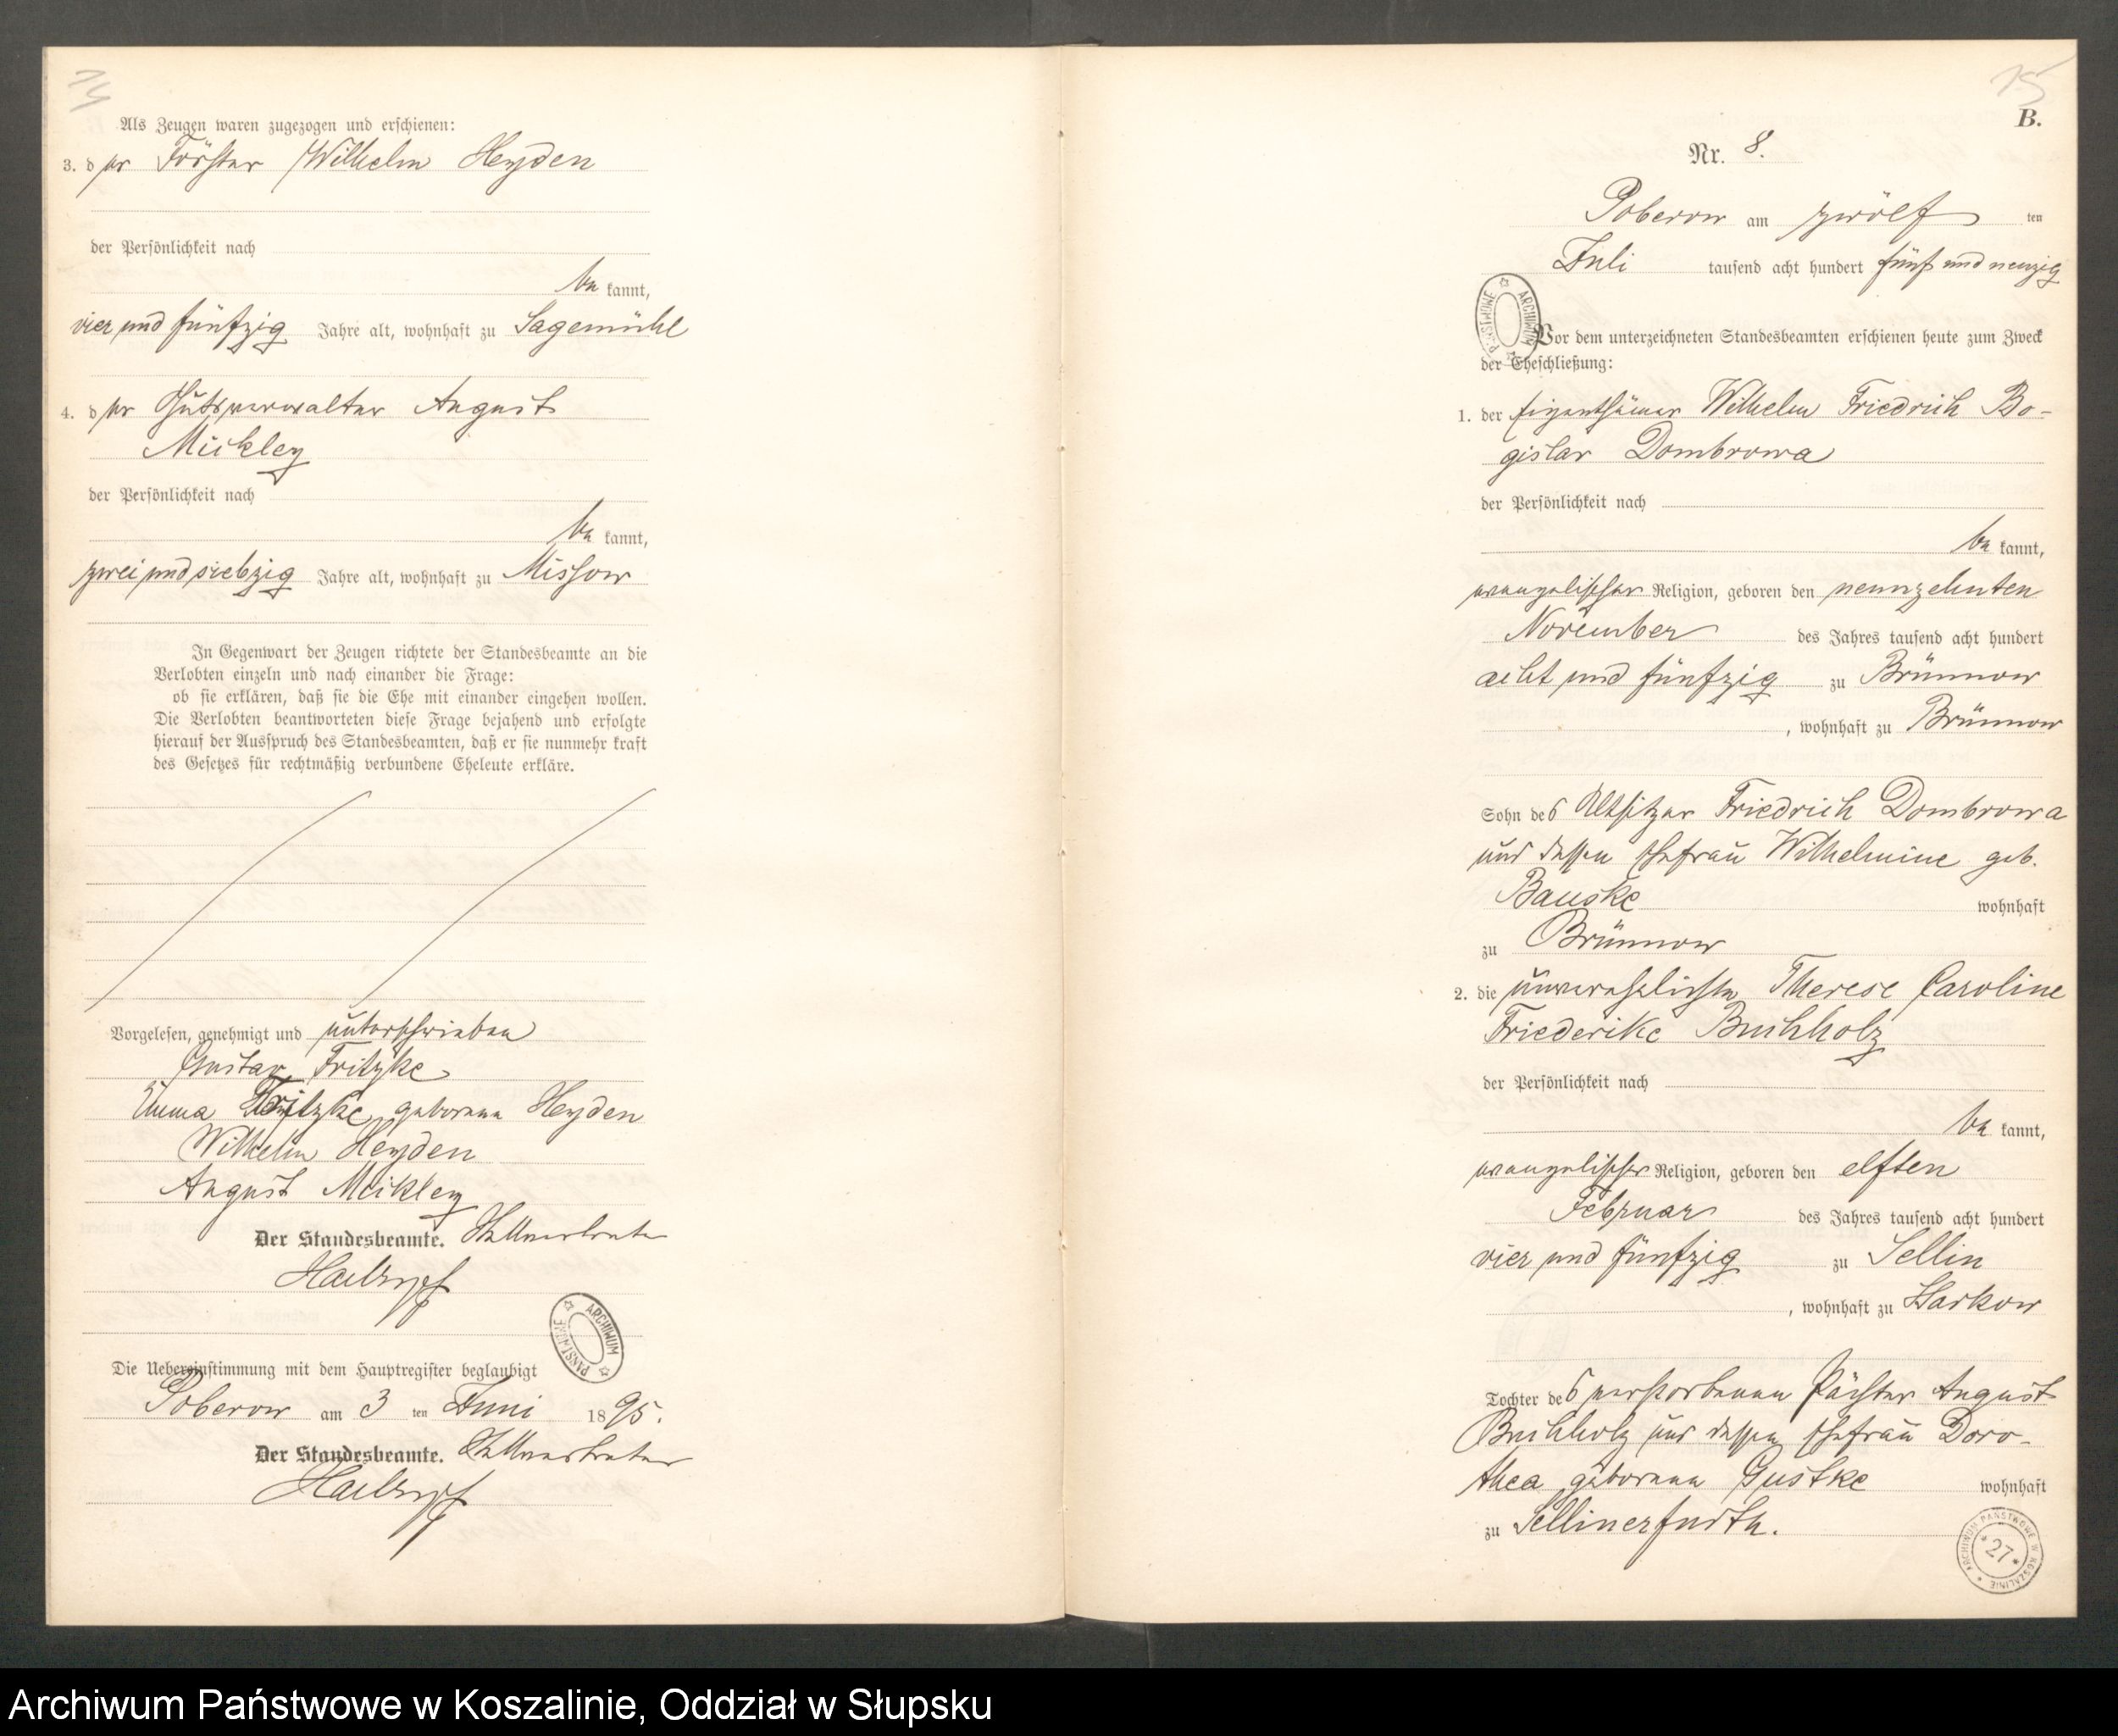 14
Als Zeugen waren zugezogen und erschienen:
3. der Förster Wilhelm Heyden
der Persönlichkeit nach
be kannt,
vier und fünfzig Jahre alt, wohnhaft zu Sagemühl
4. der Gutsverwalter August
Mickley
der Persönlichkeit nach
be kannt,
zwei und siebzig Jahre alt, wohnhaft zu Missow
In Gegenwart der Zeugen richtete der Standesbeamte an die
Verlobten einzeln und nach einander die Frage:
ob sie erklären, daß sie die Ehe mit einander eingehen wollen.
Die Verlobten beantworteten diese Frage bejahend und erfolgte
hierauf der Ausspruch des Standesbeamten, daß er sie nunmehr kraft
des Gesetzes für rechtmäßig verbundene Eheleute erkläre.
Vorgelesen, genehmigt und unterschrieben
Gustav Fritzke
Emma Fritzke geborene Heyden
Wilhelm Heyden
August Mickley
Der Standesbeamte. Stellvertreter
Die Uebereinstimmung mit dem Hauptregister beglaubigt
Poberow am 3 ten Juni 1895.
Der Standesbeamte. Stellvertreter
ARCHIWUM PAŃSTWOWE
15
B.
Nr. 8.
Poberow am zwölf ten
Juli tausend acht hundert fünf und neunzig
ARCHIWUM PAŃSTWOWE
Vor dem unterzeichneten Standesbeamten erschienen heute zum Zweck
der Eheschließung:
1. der Eigenthümer Wilhelm Friedrich Bo-
gislav Dombrowa
der Persönlichkeit nach
be kannt,
evangelischer Religion, geboren den neunzehnten
November des Jahres tausend acht hundert
acht und fünfzig zu Brünnow
, wohnhaft zu Brünnow
Sohn des Altsitzer Friedrich Dombrowa
und dessen Ehefrau Wilhelmine geb.
Bauske wohnhaft
zu Brünnow
2. die unverehelichte Therese Caroline
Friederike Buchholz
der Persönlichkeit nach
be kannt,
evangelischer Religion, geboren den elften
Februar des Jahres tausend acht hundert
vier und fünfzig zu Sellin
, wohnhaft zu Starkow
Tochter des verstorbenen Pächter August
Buchholz und dessen Ehefrau Doro-
thea geborene Gustke wohnhaft
zu
ARCHIWUM PAŃSTWOWE W KOSZALINIE
27
Archiwum Państwowe w Koszalinie, Oddział w Słupsku